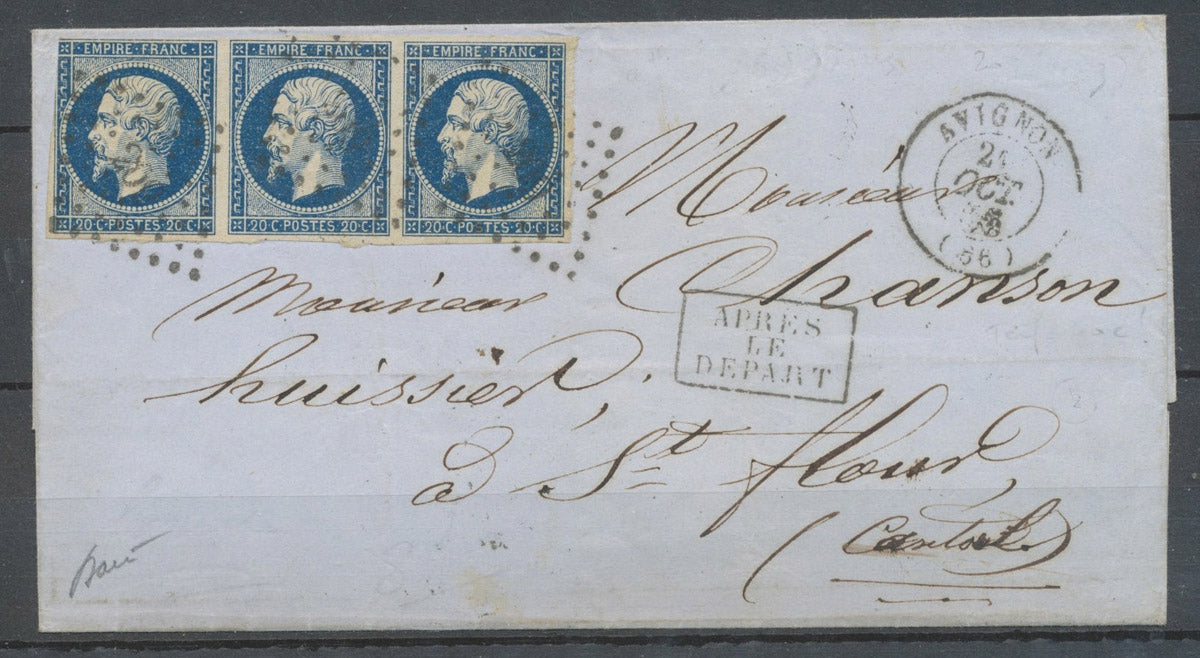 EMPIRE · FRANC · EMPIRE · FRANC · EMPIRE · FRANC ·
20 · C · POSTES · 20 · C · 20 · C · POSTES · 20 · C · 20 · C · POSTES · 20 · C ·
AVIGNON
OCT.
Monsieur
Chanson
Monsieur
APRES
LE
DEPART
huissier,
à St flour,
(Cantal)